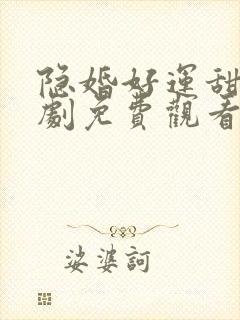 隐婚好運甜
劇免費觀看
娑婆訶